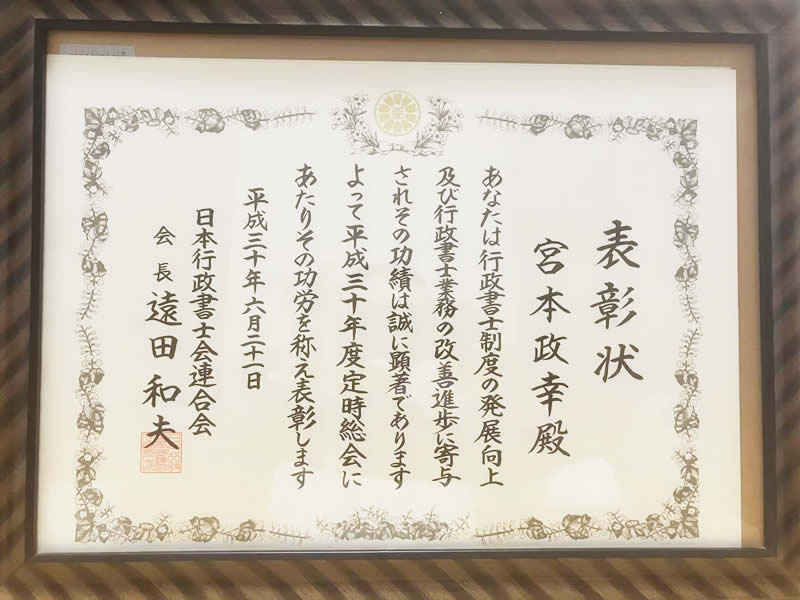 表彰状
宮本政幸殿
あなたは行政書士制度の発展向上
及び行政書士業務の改善進歩に寄与
されその功績は誠に顕著であります
よって平成三十年度定時総会に
あたりその功労を称え表彰します
平成三十年六月二十一日
日本行政書士会連合会
会長 遠田和夫